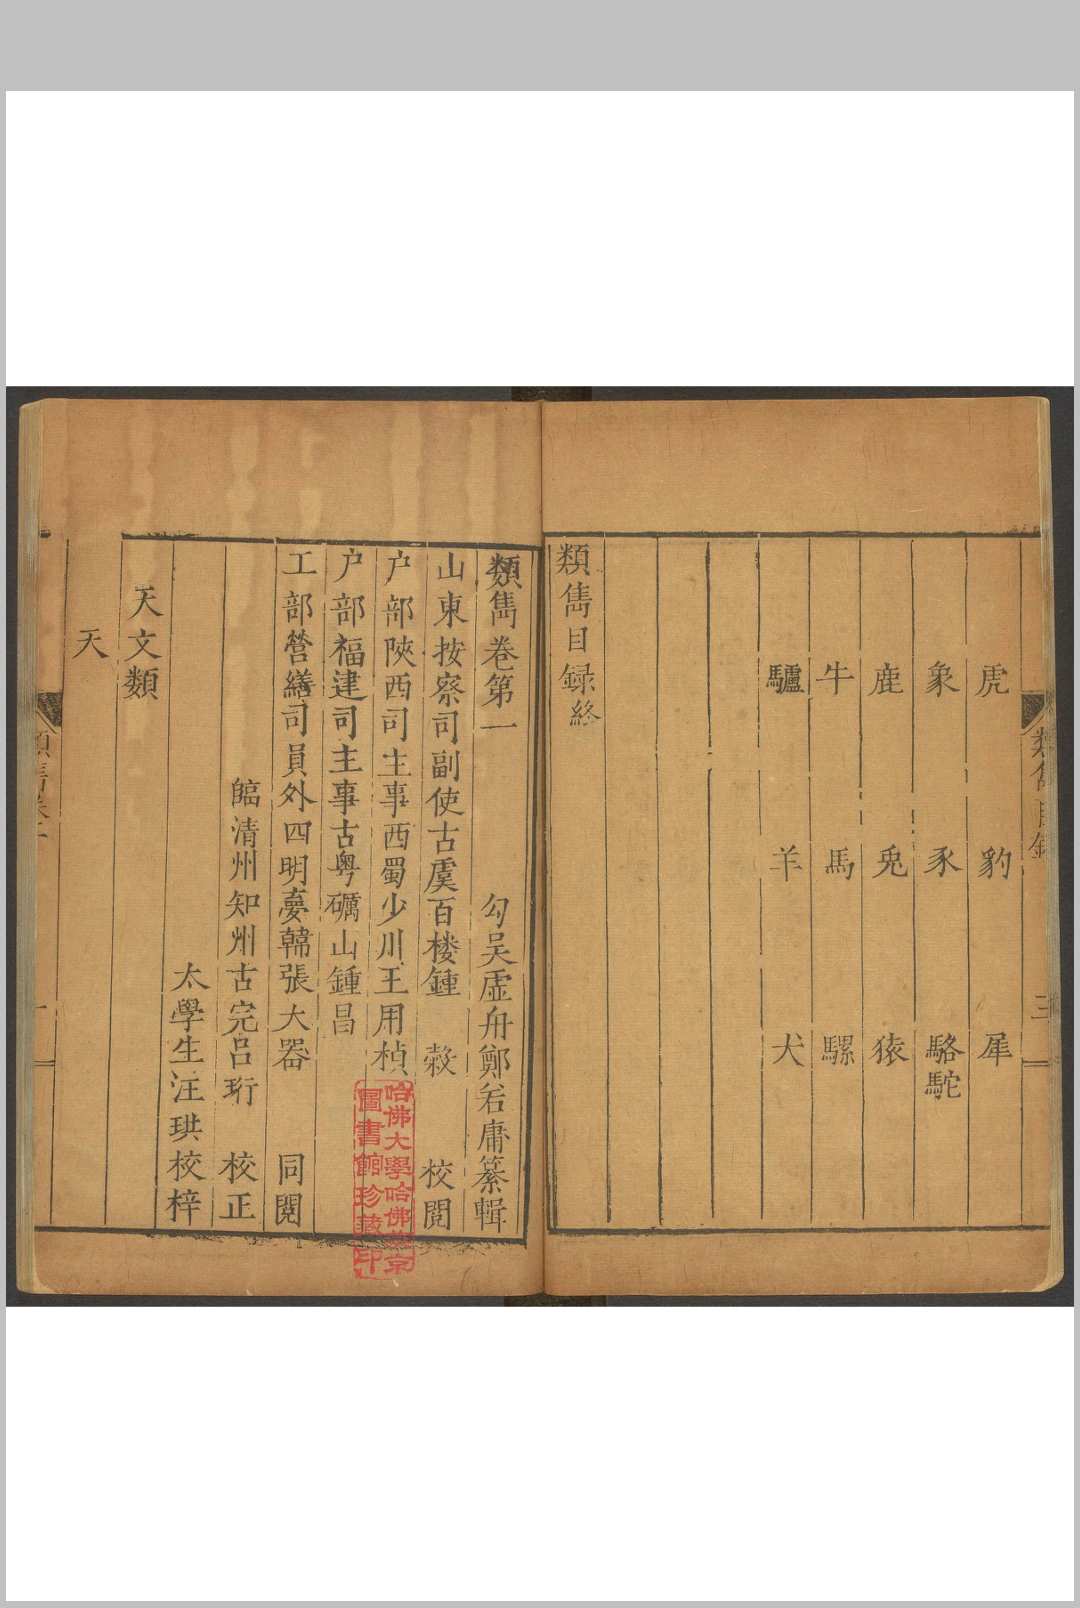 虎 豹 犀
象 豕 駱駝
鹿 兎 猿
牛 馬 騾
驢 羊 犬
類雋目録終
類雋卷第一
勾吴虛舟鄭若庸纂輯
山東按察司副使古虞百楼鍾 糓 校閲
户部陜西司主事西蜀少川王用楨
户部福建司主事古粤礪山鍾昌
工部營繕司員外四明夢韓張大器 同閲
臨清州知州古完呂珩 校正
太學生汪珙校梓
天文類
天
類雋目録
三
哈佛大學哈佛燕京
圖書館珍藏印